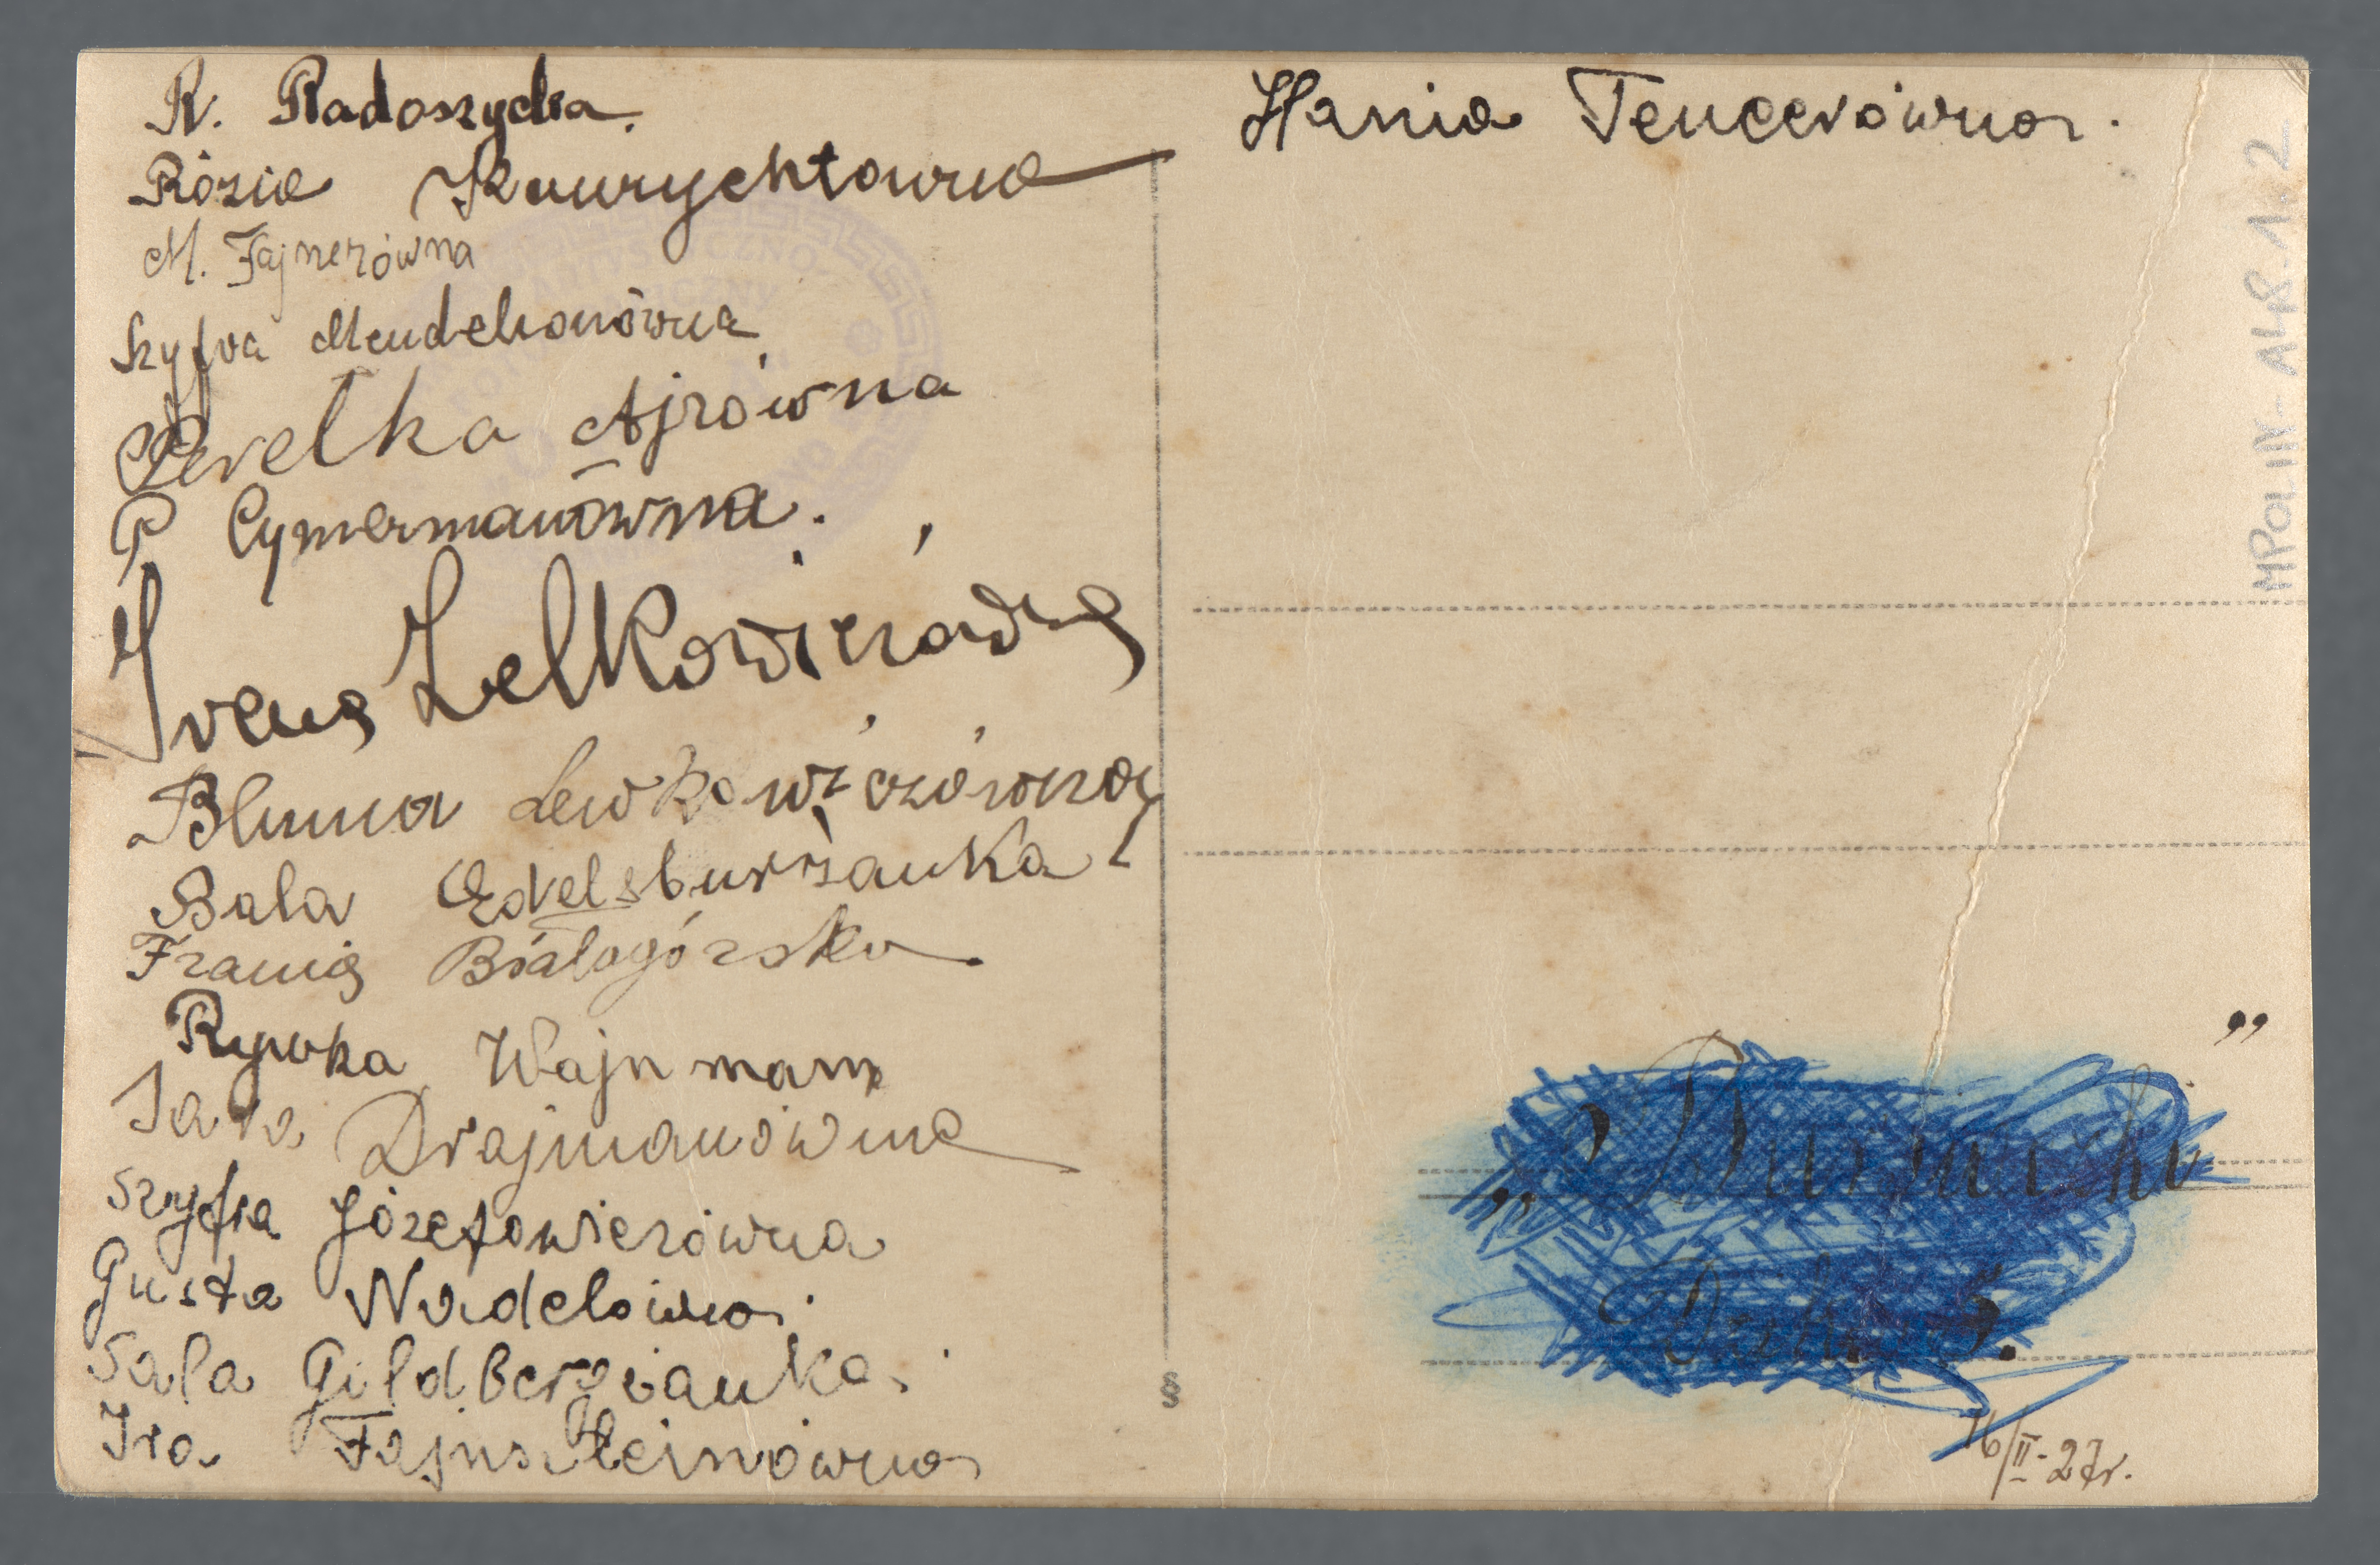 R. Radoszycka.
Rózia Kuurychtowna
M. Fajnerówna
Szyfra Mendelsonówna
Perełka Ajrówna
P Cymermanówna.
Irena Lelkowiczówna
Bluma Lewkowiczówna
Bala Edelsburżanka
Frania Białogórska
Rywka Wajnman
Sara Drajmanówna
Szyfra Józefowiczówna
Gusta Nadelówna.
Sala Gildbergianka.
Ira Fajnsztejnówna
Hania Tencerówna.
16/II-27r.
MPOLIN-A48.1.2
§